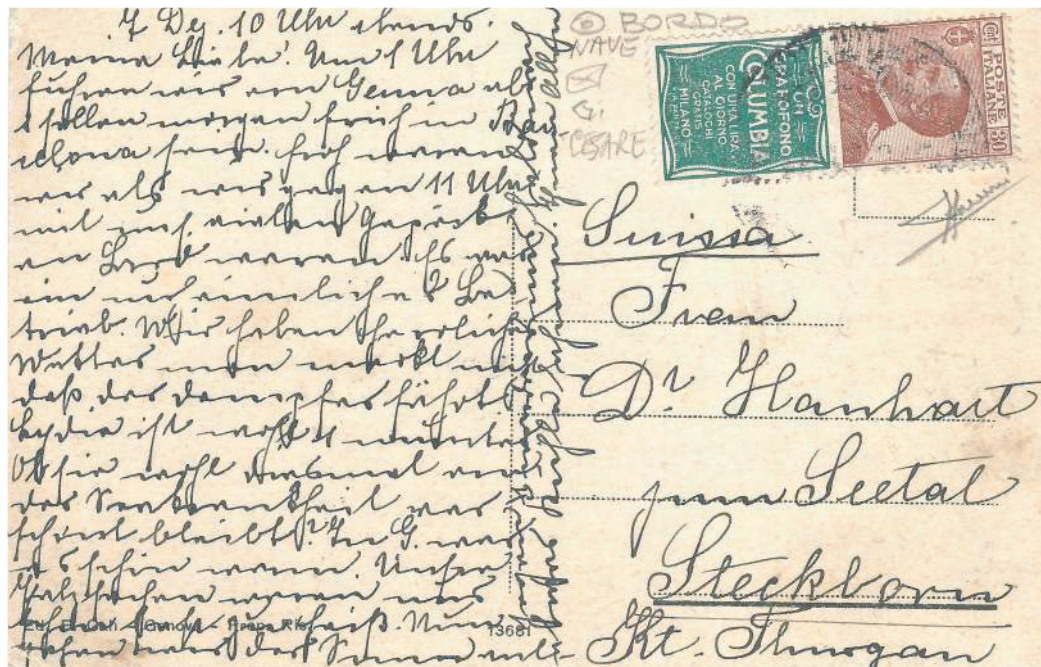 7 Dez. 10 Uhr abends.
Meine Liebe! Um 1 Uhr
fuhren wir von Genua ab
& sollen morgen früh in Bar-
celona sein. Froh waren
wir als wir gegen 11 Uhr
mit uns. vielen Gepäck
an Bord waren. Es war
ein unheimliches Be-
trieb. Wir haben herrliches
Wetter man merkt nicht
daß der Dampfer fährt.
Lydia ist wohl & munter
Ob sie wohl diesmal von
der Seekrankheit ver-
schont bleibt? In G. war
es schön warm. Unsere
Pelzsachen waren uns
Nun
gehen wir der Sonne ent-
BORDO
NAVE
G.
CESARE
GRAFOFONO
COLUMBIA
CON UNA LIRA
AL GIORNO
CATALOGHI
GRATIS
MILANO
POSTE
ITALIANE
30
Suissa
Frau
Dr Hanhart
zum Seetal
Steckborn
Kt. Thurgau
Genova
13681